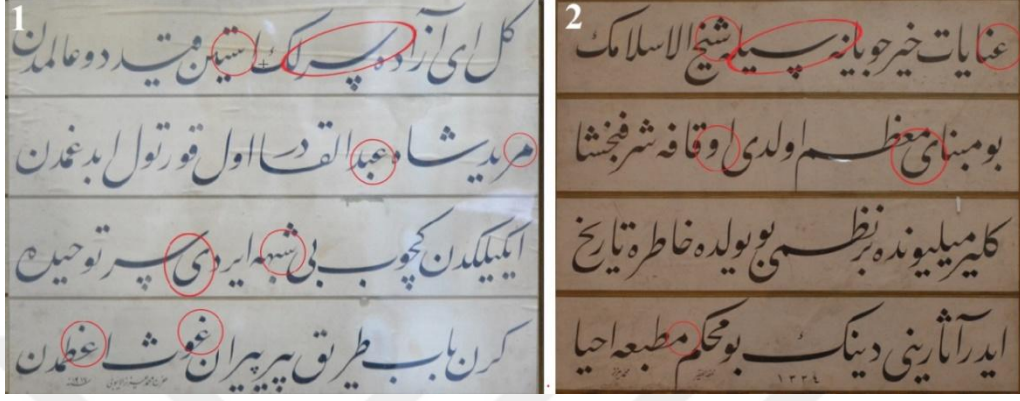 1
كل اى آزاده سرلك استسن قيد دو عالمدن
مريد شاه عبد القادر اول قورتول ابد غمدن
ايكيلكدن كچوب بى شبهه ايردى سر توحيده
كرن باب طريق پير پيران غوث اعظمدن
2
عنايات خير جويانه سيله شيخ الاسلامك
بو مبناى معظم اولدى اوقافه شرفبخشا
كلير ميليونده بر نظمى بو يولده خاطره تاريخ
ايدر آثارينى دينك بو محكم مطبعه احيا
١٣٣٤